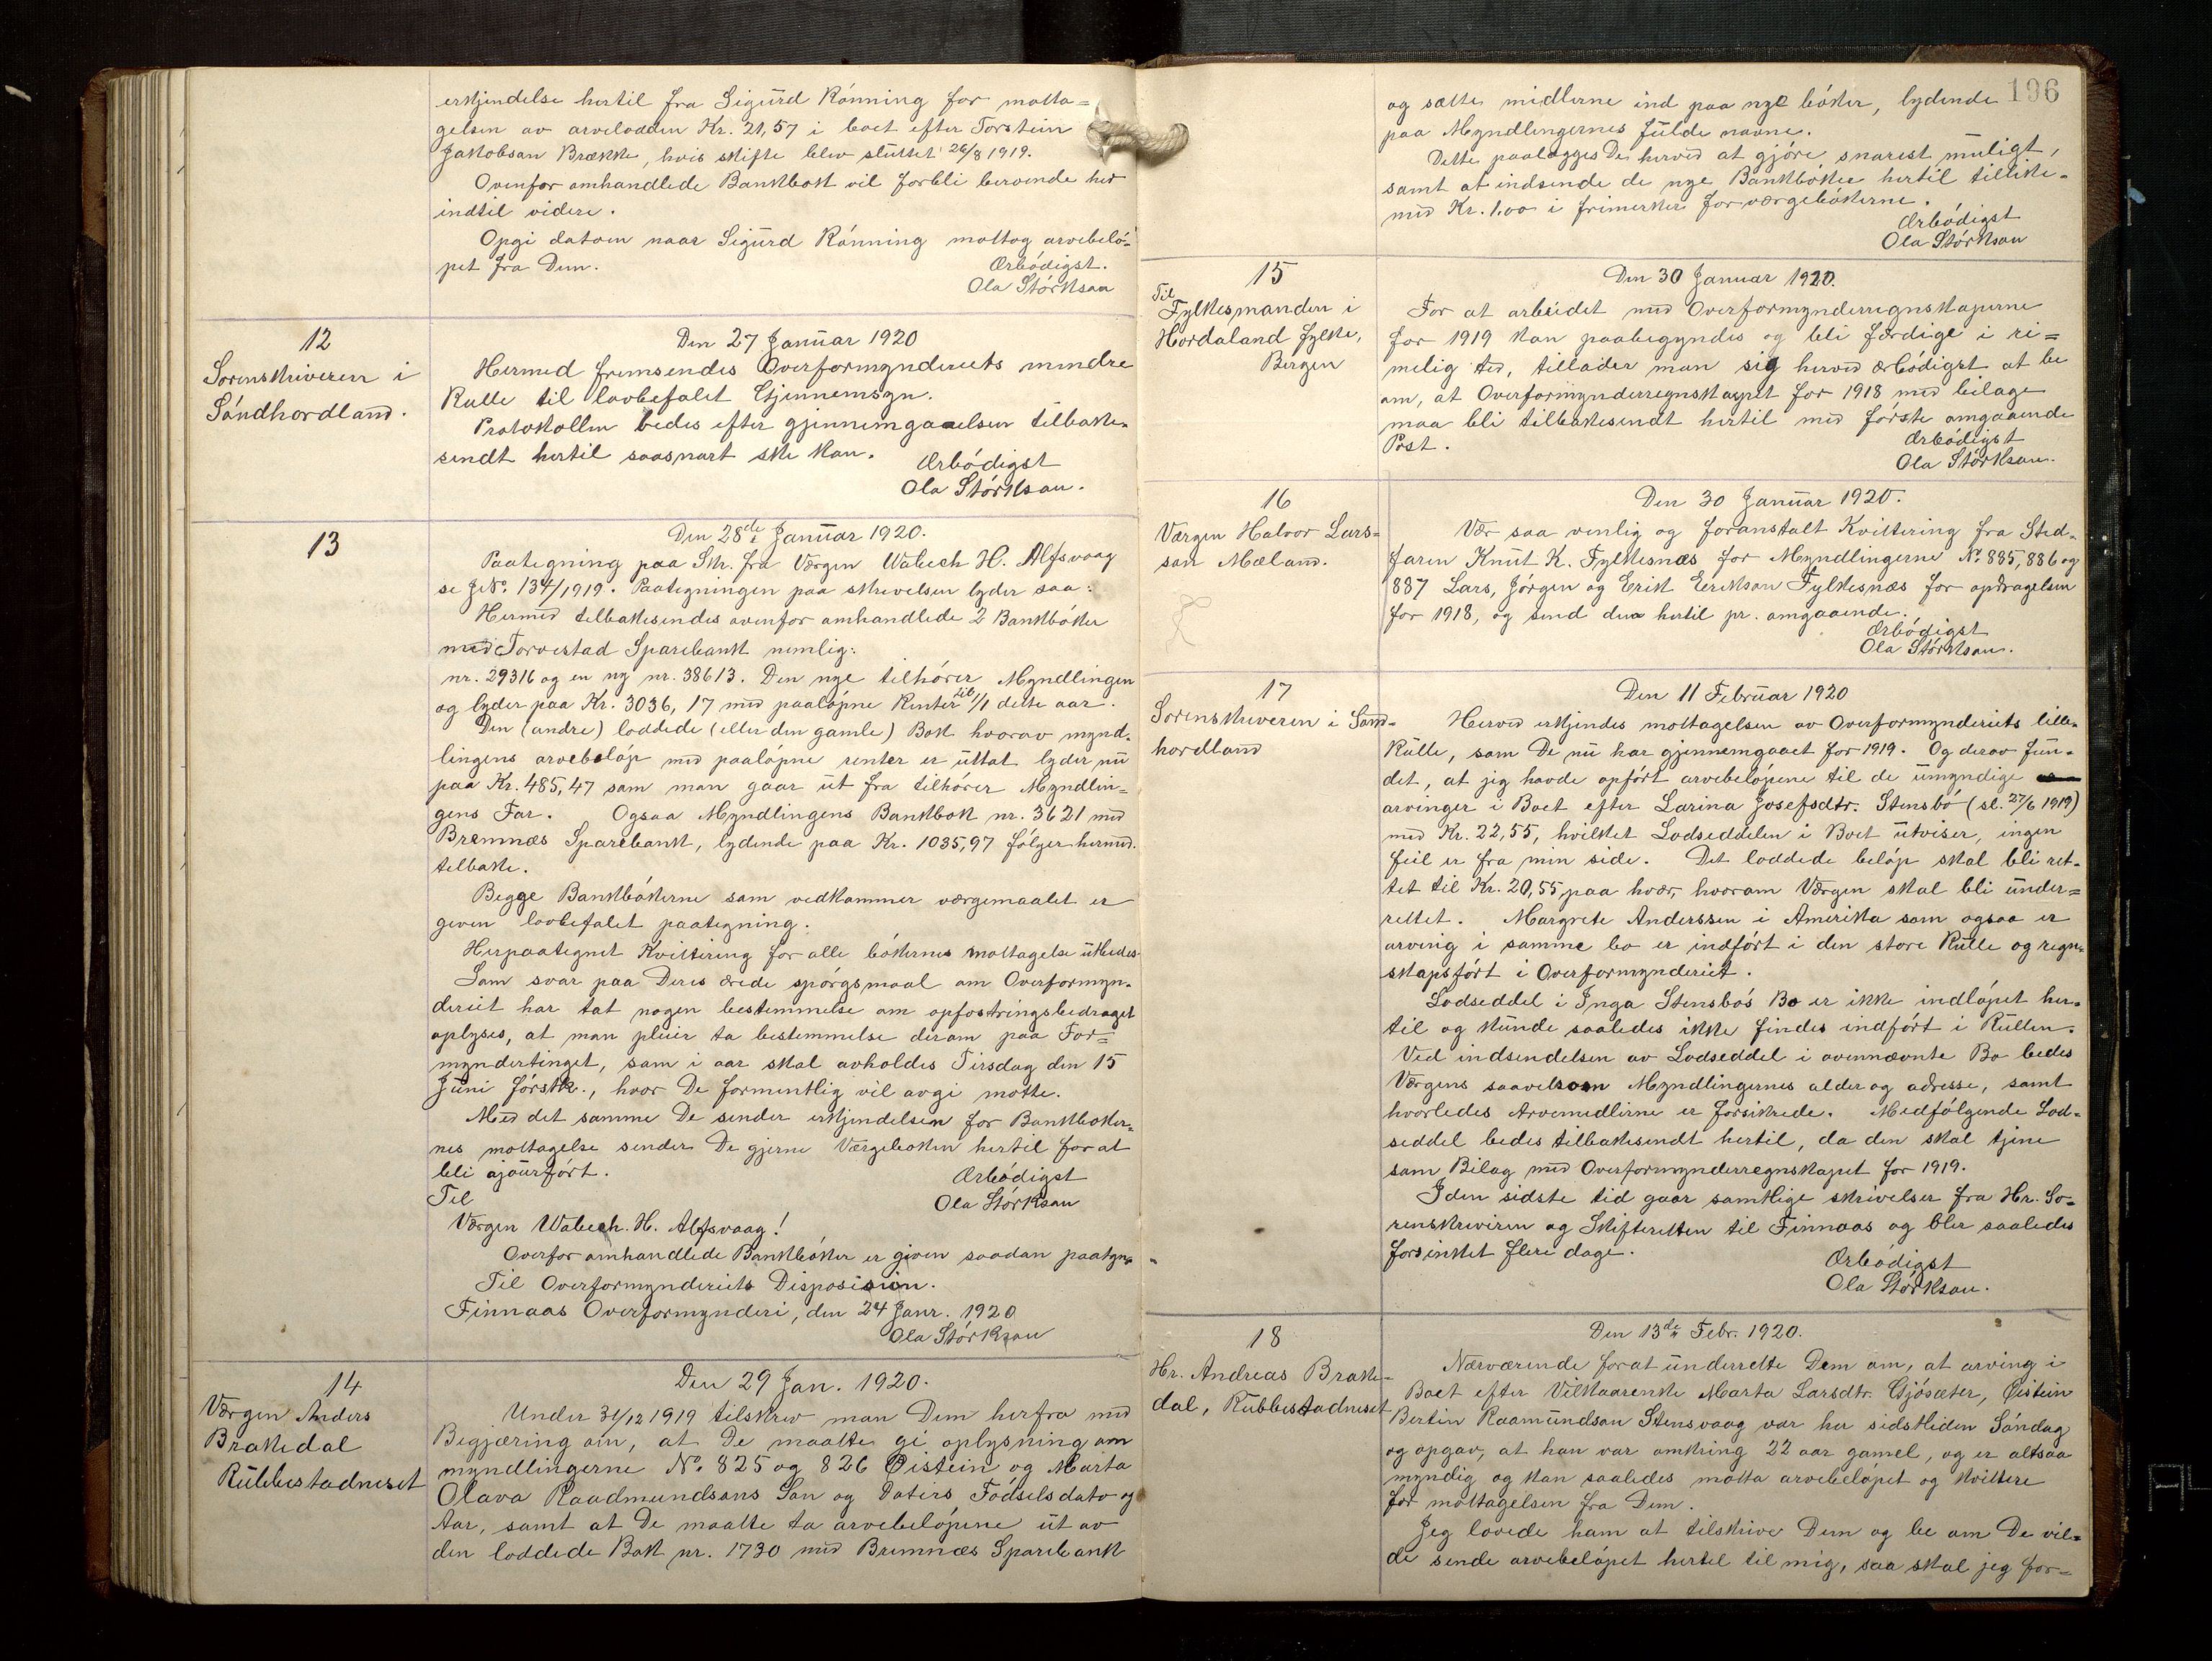 erkjendelse hertil fra Sigurd Rónning for motta=
gelsen av arvelodden Kr. 21,57 i boet efter Torstein
Jakobsan Brække, hvis skifte blev sluttet 26/8 1919.
Ovenfor omhandlede Bankbok vil forbli beroende her
indtil videre.
Opgi datoen naar Sigurd Rónning mottog arvebeló-
pet fra Dem.
Ærbódigst.
Ola Stórksan
12
Sorenskriveren i
Sóndhordland.
Den 27 Januar 1920
Hermed fremsendes Overformynderiets mindre
Rulle til lovbefalet Gjennemsyn.
Protokollen bedes efter gjennemgaaelsen tilbake-
sendt hertil saasnart ske kan.
Ærbódigst
Ola Stórksan.
13
Den 28de Januar 1920.
Paategning paa Skr. fra Værgen Wabech H. Alfsvaag
se JNo. 134/1919. Paategningen paa skrivelsen lyder saa:
Hermed tilbakesendes ovenfor omhandlede 2 Bankbóker
med Torvestad Sparebank nemlig:
nr. 29316 og en ny nr. 38613. Den nye tilhórer Myndlingen
og lyder paa Kr. 3036,17 med paalópne Renter til 1/1 dette aar.
Den (andre) loddede (eller den gamle) Bok hvorav mynd-
lingens arvebelóp med paalópne renter er uttat lyder nu
paa Kr. 485,47 som man gaar ut fra tilhórer Myndlin=
gens Far. Ogsaa Myndlingens Bankbok nr. 3621 med
Bremnæs Sparebank, lydende paa Kr. 1035,97 fólger hermed
tilbake.
Begge Bankbókerne som vedkommer værgemaalet er
given lovbefalet paategning.
Herpaategnet Kvittering for alle bókernes mottagelse utbedes.
Som svar paa Deres ærede spórgsmaal om Overformyn-
deriet har tat nogen bestemmelse om opfostringsbedraget
oplyses, at man pleier ta bestemmelse derom paa For=
myndertinget, som i aar skal avholdes Tirsdag den 15
Juni fórstk., hvor De formentlig vil avgi mótte.
Med det samme De sender erkjendelsen for Bankbóker-
nes mottagelse sender De gjerne Værgeboken hertil for at
bli ajourfórt.
Ærbódigst
Ola Stórksan
Til
Værgen Wabech. H. Alfsvaag!
Overfor omhandlede Bankbóker er given saadan paategn.
Til Overformynderiets Disposision.
Finnaas Overformynderi, den 24 Janr. 1920
Ola Stórksan
14
Værgen Anders
Brakedal
Rubbestadneset
Den 29 Jan. 1920.
Under 31/12 1919 tilskrev man Dem herfra med
Begjæring om, at De maatte gi oplysning om
myndlingerne No. 825 og 826 Øistein og Marta
Olava Raadmundsons Són og Daters Fódselsdato og
Aar, samt at De maatte ta arvebelópene ut av
den loddede Bok nr. 1730 med Bremnæs Sparebank
196
og sætte midlerne ind paa nye bóker, lydende
paa Myndlingernes fulde navne.
Dette paalægges De herved at gjóre snarest muligt,
samt at indsende de nye Bankbóker hertil tillike-
med Kr. 1,00 i frimerker for værgebókerne.
Ærbódigst
Ola Stórksan
15
Til
Fylkesmanden i
Hordaland fylke,
Bergen
Den 30 Januar 1920.
For at arbeidet med Overformynderregnskaperne
for 1919 kan paabegyndes og bli færdige i ri=
melig tid, tillader man sig herved ærbódigst at be
om, at Overformynderregnskapet for 1918 med bilage
maa bli tilbakesendt hertil med fórste omgaaende
Post.
Ærbódigst
Ola Stórksan.
16
Værgen Halvor Lars=
son Mæland.
Den 30 Januar 1920.
Vær saa venlig og foranstalt Kvittering fra Sted-
faren Knut K. Fylkesnæs for Myndlingerne No. 885, 886 og
887 Lars, Jórgen og Erik Eirikson Fylkesnæs for opdragelsen
for 1918, og send den hertil pr. omgaaende.
Ærbódigst
Ola Stórksan.
17
Sorenskriveren i Sónd-
hordland
Den 11 Februar 1920
Herved erkjendes mottagelsen av Overformynderiets lille
Rulle, som De nu har gjennemgaaet for 1919. Og derav fun-
det, at jeg havde opfórt arvebelópene til de umyndige
arvinger i Boet efter Larina Josefsdtr. Stensbó (sl. 27/6 1919)
med Kr. 22,55, hvilket Lodseddelen i Boet utviser, ingen
feil er fra min side. Det loddede belóp skal bli ret-
tet til Kr. 20,55 paa hver, hvorom Værgen skal bli under=
rettet. Margrete Anderssen i Amerika som ogsaa er
arving i samme bo er indfórt i den store Rulle og regn-
skapsfórt i Overformynderiet.
Lodseddel i Inga Stensbós Bo er ikke indlópet her-
til og kunde saaledes ikke findes indfórt i Rullen.
Ved indsendelsen av Lodseddel i ovennævnte Bo bedes
Værgens saavelsom Myndlingernes alder og adresse, samt
hvorledes Arvemidlerne er forsikrede. Medfólgende Lod-
seddel bedes tilbakesendt hertil, da den skal tjene
som Bilag med Overformynderregnskapet for 1919.
I den sidste tid gaar samtlige skrivelser fra Hr. So-
renskriveren og Skifteretten til Finnaas og bler saaledes
forsinket flere dage.
Ærbódigst
Ola Stórksan.
18
Hr. Andreas Brake-
dal, Rubbestadneset
Den 13de Febr. 1920.
Nærværende for at underrette Dem om, at arving i
Boet efter Vilkaarenke Marta Larsdtr. Gjósæter, Øistein
Bertin Raamundsan Stensvaag var her sidstleden Sóndag
og opgav, at han var omkring 22 aar gamel, og er altsaa
myndig og kan saaledes motta arvebelópet og kvittere
for mottagelsen fra Dem.
Jeg lovede ham at tilskrive Dem og be om De vil=
de sende arvebelópet hertil til mig, saa skal jeg for=